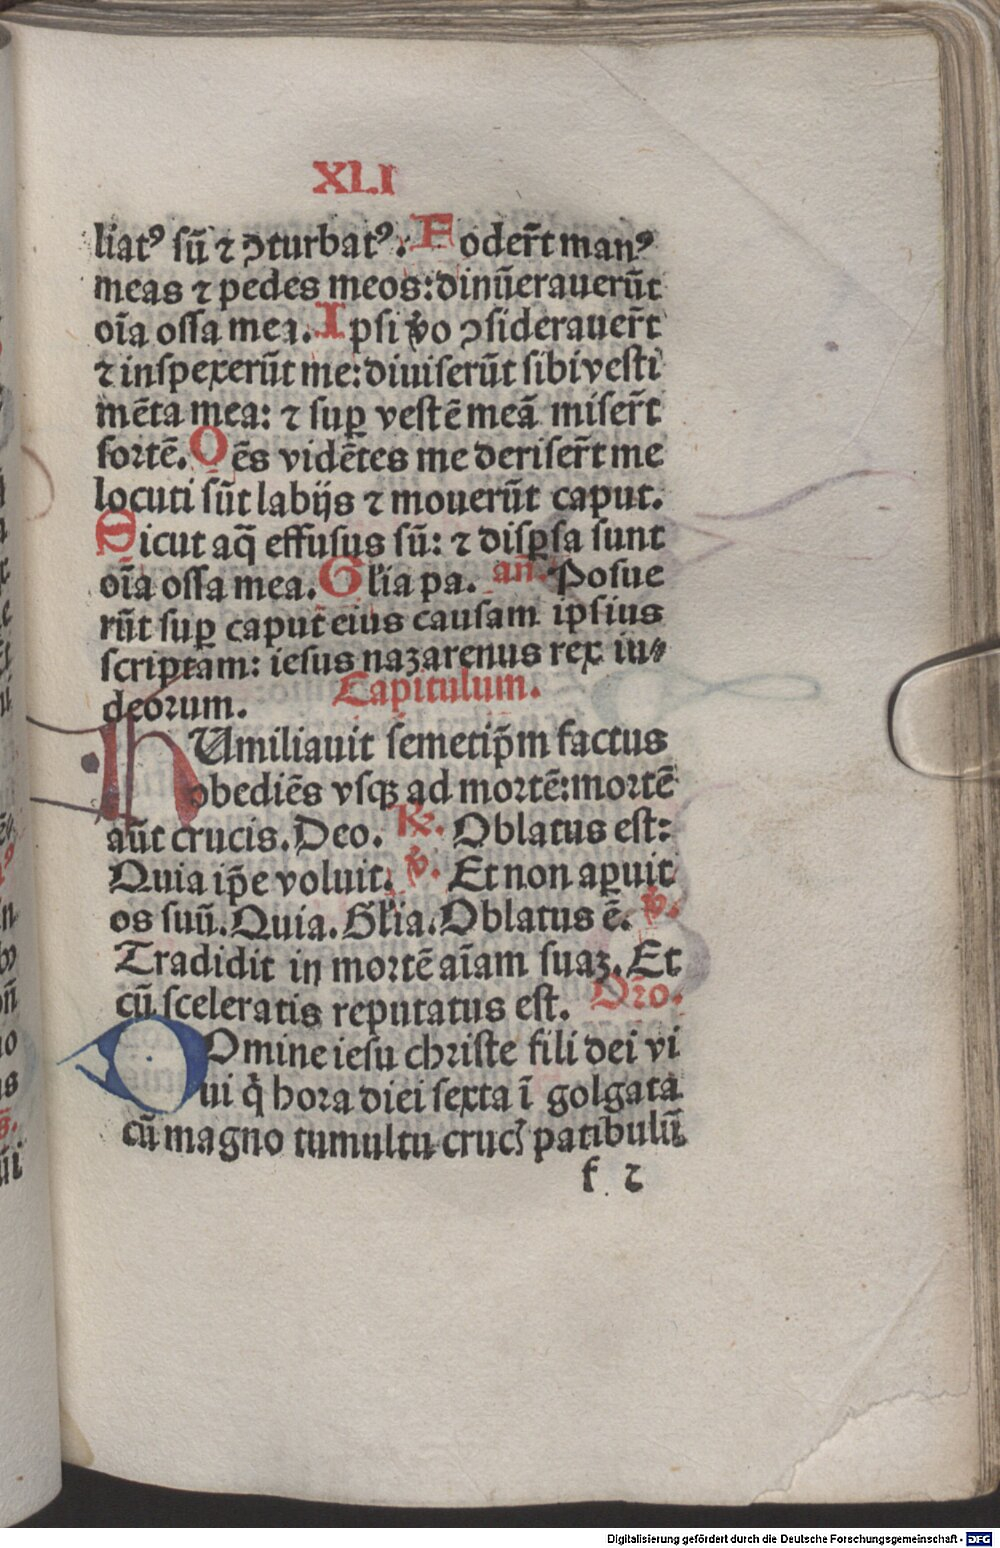 XLI
liatꝰ sū ⁊ ꝯturbatꝰ. Foder̄t manꝰ
meas ⁊ pedes meos: dinūerauerūt
oīa ossa mea. Ipsi ꝟo ꝯsiderauer̄t
⁊ inspexerūt me: diuiserūt sibi vesti
mēta mea: ⁊ suꝑ vestē meā miser̄t
sortē. Oēs vidētes me deriser̄t me
locuti sūt labijs ⁊ mouerūt caput.
Sicut aq̄ effusus sū: ⁊ disꝑsa sunt
oīa ossa mea. Gl'ia pa. an̄. Posue
rūt suꝑ caput eius causam ipsius
scriptam: iesus nazarenus rex iu⸗
deorum. Capitulum.
hUmiliauit semetip̄m factus
obediēs vsqꝫ ad mortē: mortē
aūt crucis. Deo. ℞. Oblatus est:
Quia ip̄e voluit. ꝟ. Et non aꝑuit
os suū. Quia. Gl'ia. Oblatus ē. ꝟ.
Tradidit in mortē aīam suaꝫ. Et
cū sceleratis reputatus est. Or̄o.
DOmine iesu christe fili dei vi
ui q̇ hora diei sexta ī golgata
cū magno tumultu crucꝭ patibulū
f ⁊
Digitalisierung gefördert durch die Deutsche Forschungsgemeinschaft - DFG